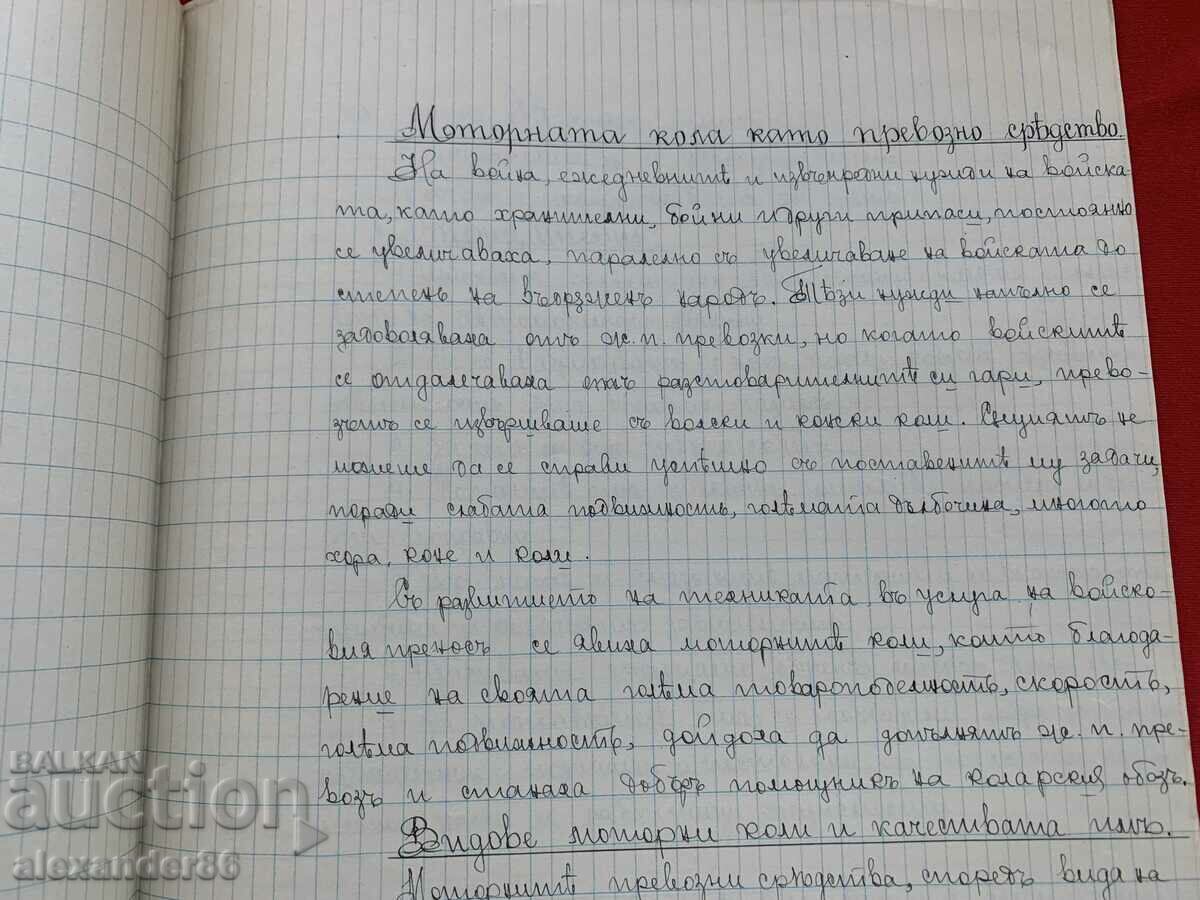 Моторната кола като превозно срѣдство.
На война, ежедневнитѣ и извънредни нужди на войска-
та, като хранителни, бойни и други припаси, постоянно
се увеличаваха, паралелно съ увеличаване на войската до
степень на въоръженъ народъ. Тѣзи нужди напълно се
задоволяваха отъ ж.п. превозки, но когато войскитѣ
се отдалечаваха отъ разтоварителнитѣ си гари, прево-
зътъ се извършваше съ волски и конски коли. Сѫщиятъ не
можеше да се справи успѣшно съ поставенитѣ му задачи,
поради слабата подвижность, голѣмата дълбочина, многото
хора, коне и коли.
Съ развитието на техниката, въ услуга на войско-
вия преносъ се явиха моторнитѣ коли, които благода-
рение на своята голѣма товароподемность, скорость,
голѣма подвижность, дойдоха да допълнятъ ж.п. пре-
возъ и станаха добъръ помощникъ на коларския обозъ.
Видове моторни коли и качествата имъ.
Моторнитѣ превозни срѣдства, споредъ вида на
BALKAN
auction
alexander86